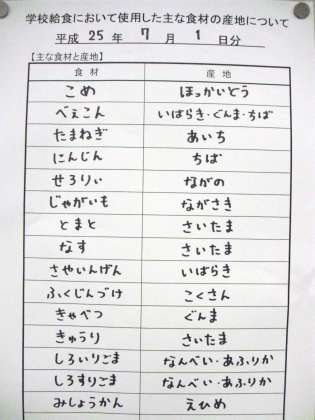 学校給食において使用した主な食材の産地について
平成 25 年 7 月 1 日分
【主な食材と産地】
食材 産地
こめ ほっかいどう
べぇこん いばらき・ぐんま・ちば
たまねぎ あいち
にんじん ちば
せろりぃ ながの
じゃがいも ながさき
とまと さいたま
なす さいたま
さやいんげん いばらき
ふくじんづけ こくさん
きゃべつ ぐんま
きゅうり さいたま
しろいりごま なんべい・あふりか
しろすりごま なんべい・あふりか
みしょうかん えひめ